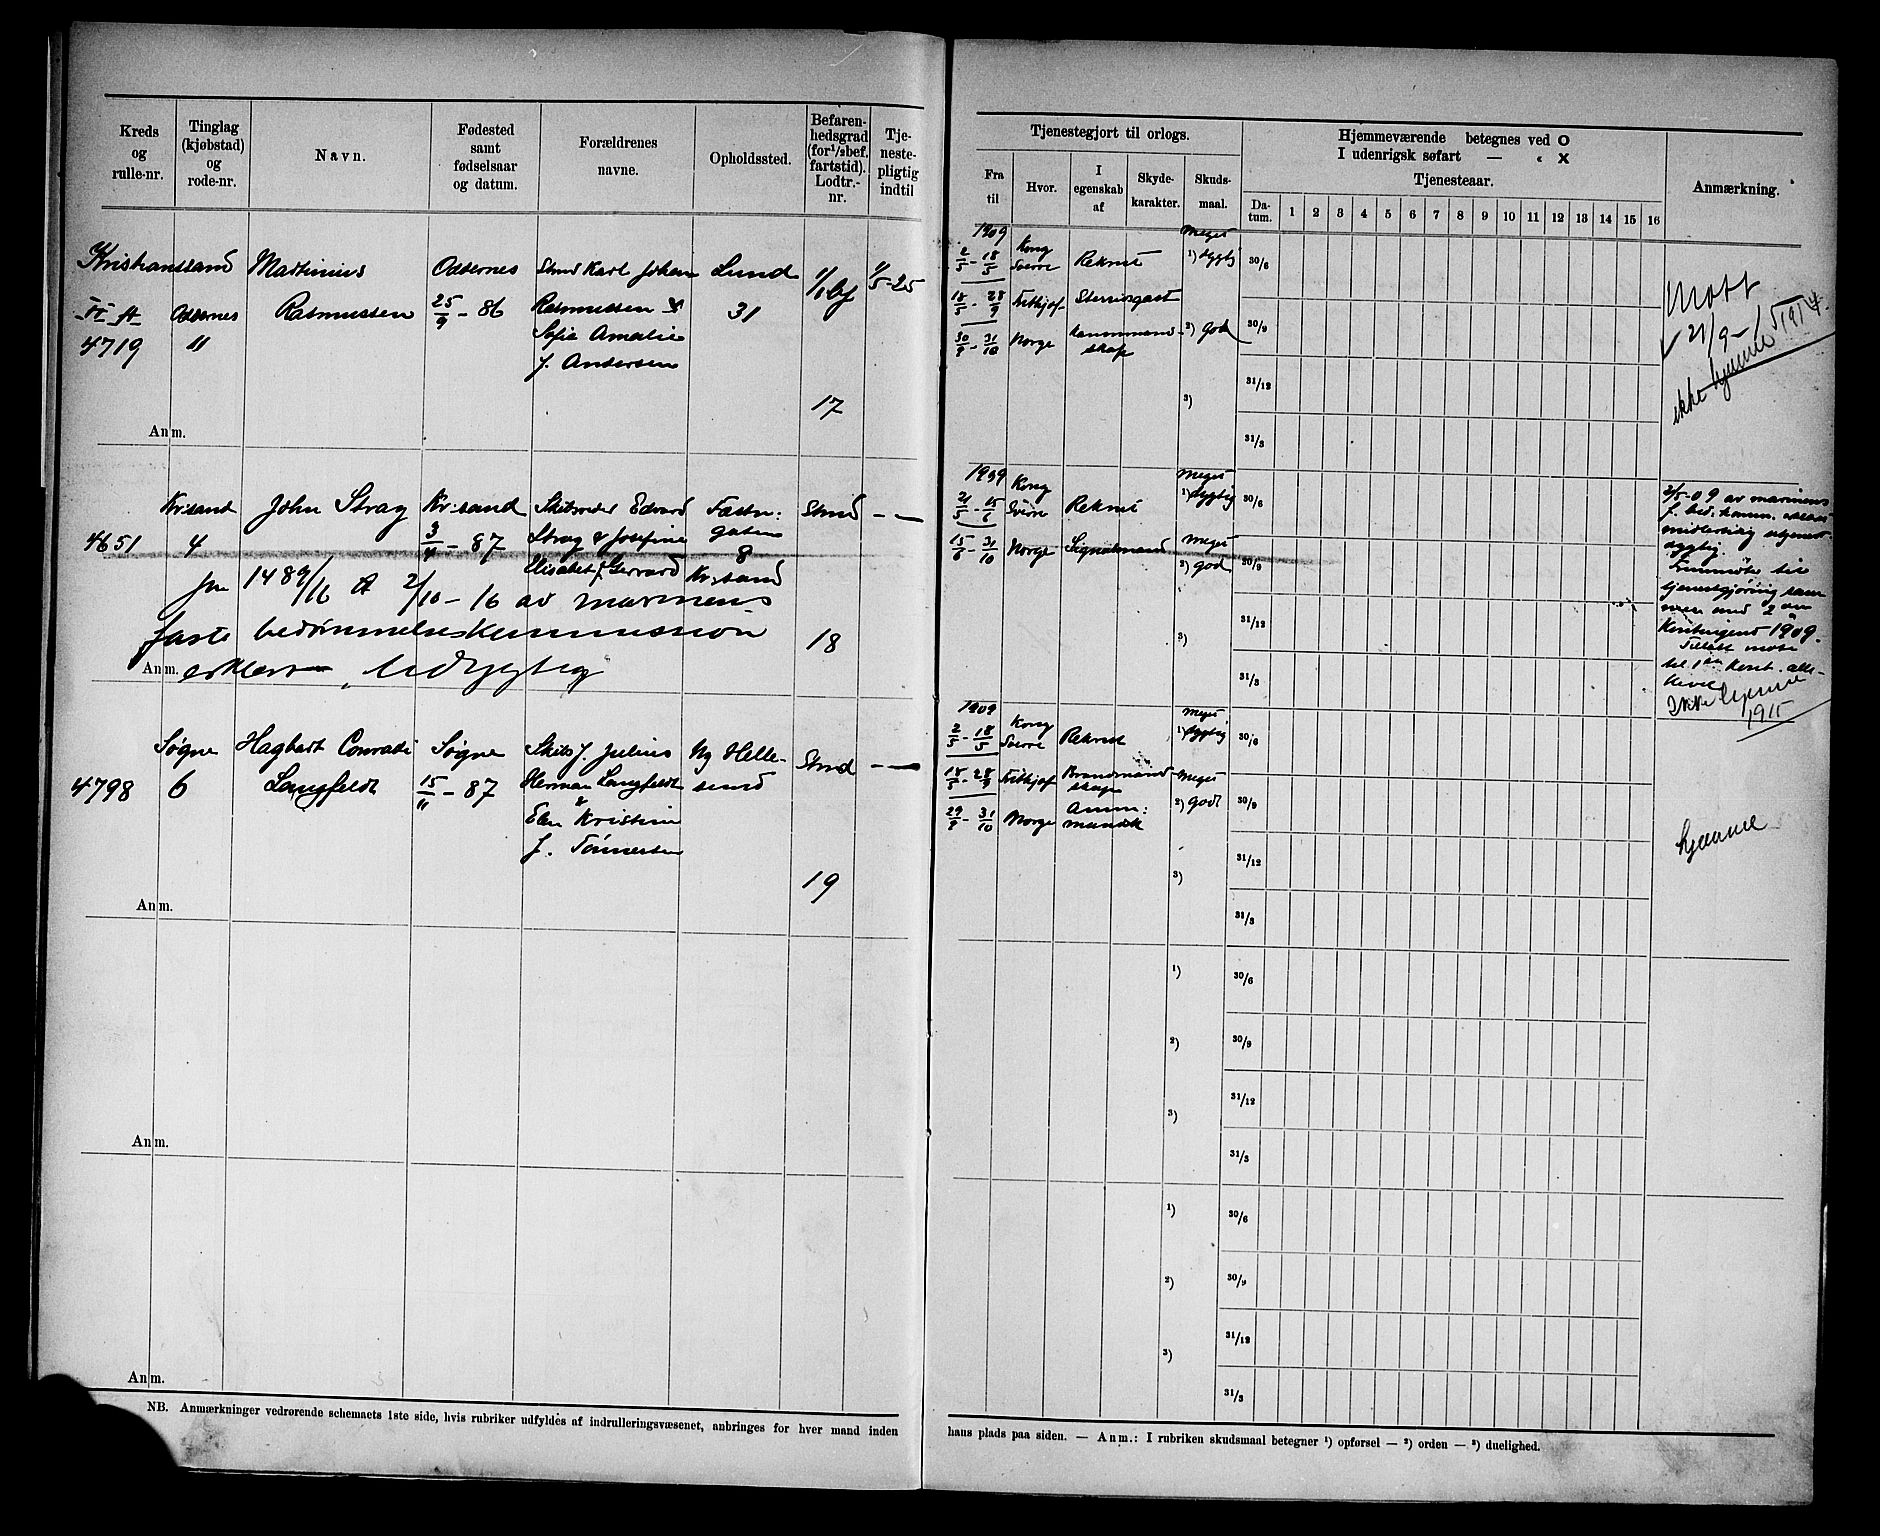 Kreds og rulle-nr.
Tinglag (kjøbstad) og rode-nr.
Navn.
Fødested samt fødselsaar og datum.
Forældrenes navne.
Opholdssted.
Befaren-hedsgrad (for ½bef. fartstid). Lodtr.-nr.
Tje-neste-pligtig indtil
Kristianssand Martinius Oddernes Karl Johan Lund
II A Oddernes Rasmussen 25/9 - 86 Rasmussen & 31
4719 11 Sofie Amalie
f. Andersen
17
Anm.
Kr:sand John Stray Kr:sand Skibsreder Edvard Fæstn: Stud — —
4651 4 3/4 - 87 Stray & Josefine gaten 8
Elisabet f. Gerrard Kr:sand
jnr 1489/16 A 2/10 - 16 av marinens
faste bedømmelseskommission 18
Anm. erklært Udygtig
Søgne Hagbart Conradi Søgne Skibsf. Julius Ny Helle- Stud — —
4798 6 Langfeldt 15/11 - 87 Herman Langfeldt sund
& Kristine
f. Tønnesen
19
Anm.
Anm.
Anm.
NB. Anmærkninger vedrørende schemaets 1ste side, hvis rubriker udfyldes af indrulleringsvæsenet, anbringes for hver mand inden
Tjenestegjort til orlogs.
Hjemmeværende betegnes ved O
I udenrigsk søfart — « X
Tjenesteaar.
Anmærkning.
Fra til
Hvor.
I egenskab af
Skyde-karakter.
Skuds-maal.
Da-tum. 1 2 3 4 5 6 7 8 9 10 11 12 13 14 15 16
1909 Meget
2/5 - 18/5 Kong Sverre Rekrut 1) dygtig 30/6
18/5 - 28/9 Frithjof
30/9 - 31/10 Norge 2) god 30/9
Mødt
21/9 - 1914.
ikke hjemme
31/12
3)
31/3
1909 Kong Meget
21/5 - 15/6 Sverre Rekrut 1) dygtig 30/6
15/6 - 31/10 Norge Signalmand meget
2) god 30/9
31/12
3)
31/3
2/5-09 av marinens
f. bed. komm.
midlertidig
dygtig.
Fremmøte til
tjenestgjøring sam
men med 2 den
Kontingent 1909.
til 1ste Kont.
Ikke hjemme
1915
1909 Meget
2/5 - 18/5 Kong Sverre Rekrut 1) dygtig 30/6
18/5 - 28/9 Frithjof Meget
29/9 - 31/10 Norge 2) godt 30/9
hjemme
31/12
3)
31/3
1) 30/6
2) 30/9
3) 31/12
31/3
1) 30/6
2) 30/9
3) 31/12
31/3
hans plads paa siden. — Anm.: I rubriken skudsmaal betegner ¹) opførsel — ²) orden — ³) duelighed.